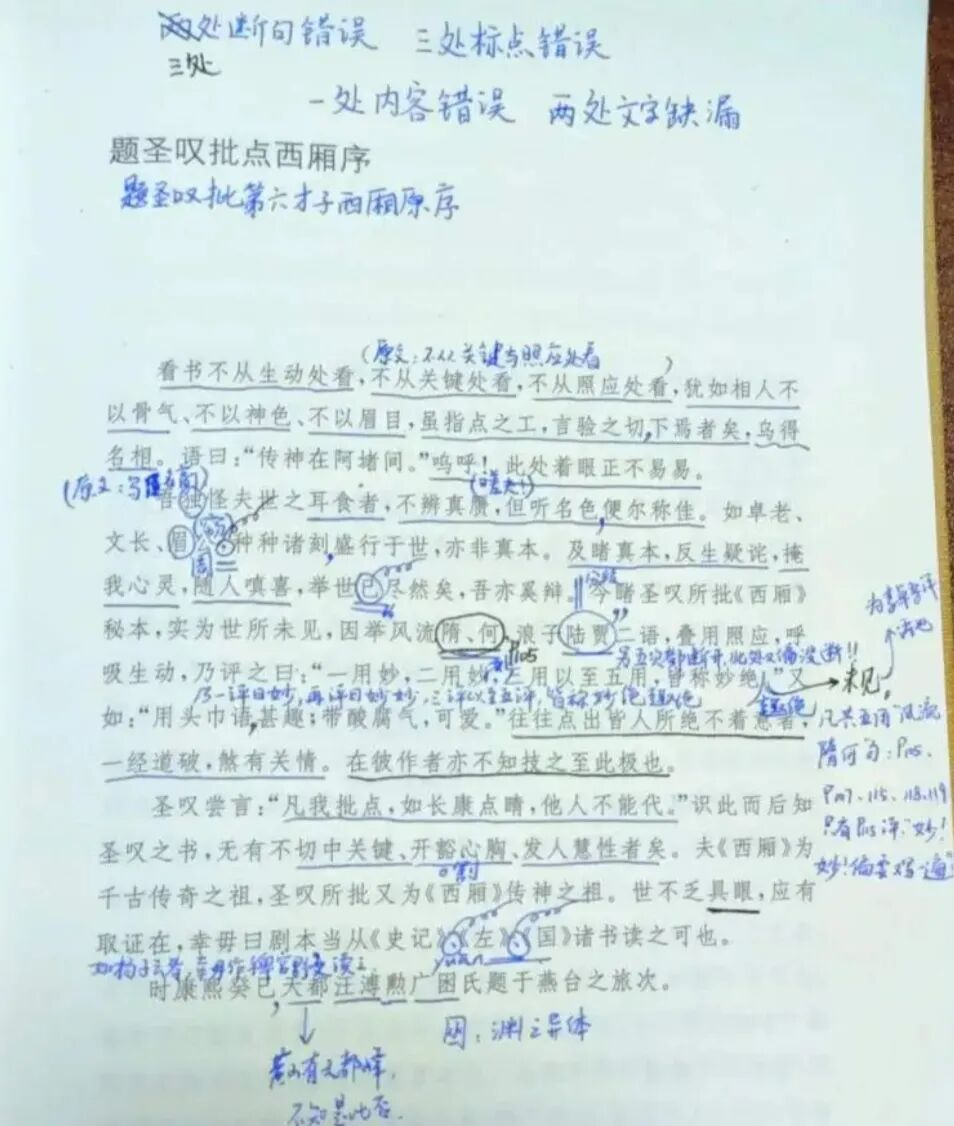 两处断句错误 三处标点错误
三处
一处内容错误 两处文字缺漏
题圣叹批点西厢序
题圣叹批第六才子西厢原序
(原文:不从关键与照应处看)
看书不从生动处看,不从关键处看,不从照应处看,犹如相人不
以骨气、不以神色、不以眉目,虽指点之工,言验之切,下焉者矣,乌得
名相。语曰:“传神在阿堵间。”呜呼!此处着眼正不易易。
(嗟夫!)
吾独怪夫世之耳食者,不辨真赝,但听名色,便尔称佳。如卓老、
文长、眉公 种种诸刻,盛行于世,亦非真本。及睹真本,反生疑诧,掩
我心灵,随人嗔喜,举世已尽然矣,吾亦奚辩。今睹圣叹所批《西厢》
秘本,实为世所未见,因举风流隋、何,浪子陆贾二语,叠用照应,呼
另五次都断开,此处又偏没断!!
吸生动,乃评之曰:“一用妙,二用妙,三用以至五用,皆称妙绝。”又
乃一评曰妙,再评曰妙妙,三评以至五评,皆称妙绝趣绝
未见。
如:“用头巾语甚趣;带酸腐气,可爱。”往往点出皆人所绝不着意者,
凡共五用“风流
一经道破,煞有关情。在彼作者亦不知技之至此极也。
隋何”句:P105、
圣叹尝言:“凡我批点,如长康点睛,他人不能代。”识此而后知
P107、115、118、119
只有P115评“妙!
圣叹之书,无有不切中关键、开豁心胸、发人慧性者矣。夫《西厢》为
千古传奇之祖,圣叹所批又为《西厢》传神之祖。世不乏具眼,应有
取证在,幸毋曰剧本当从《史记》《左》《国》诸书读之可也。
时康熙癸巳天都汪溥勲广囦氏题于燕台之旅次。
囦:渊之异体
黄山有天都峰,
不知是此否.